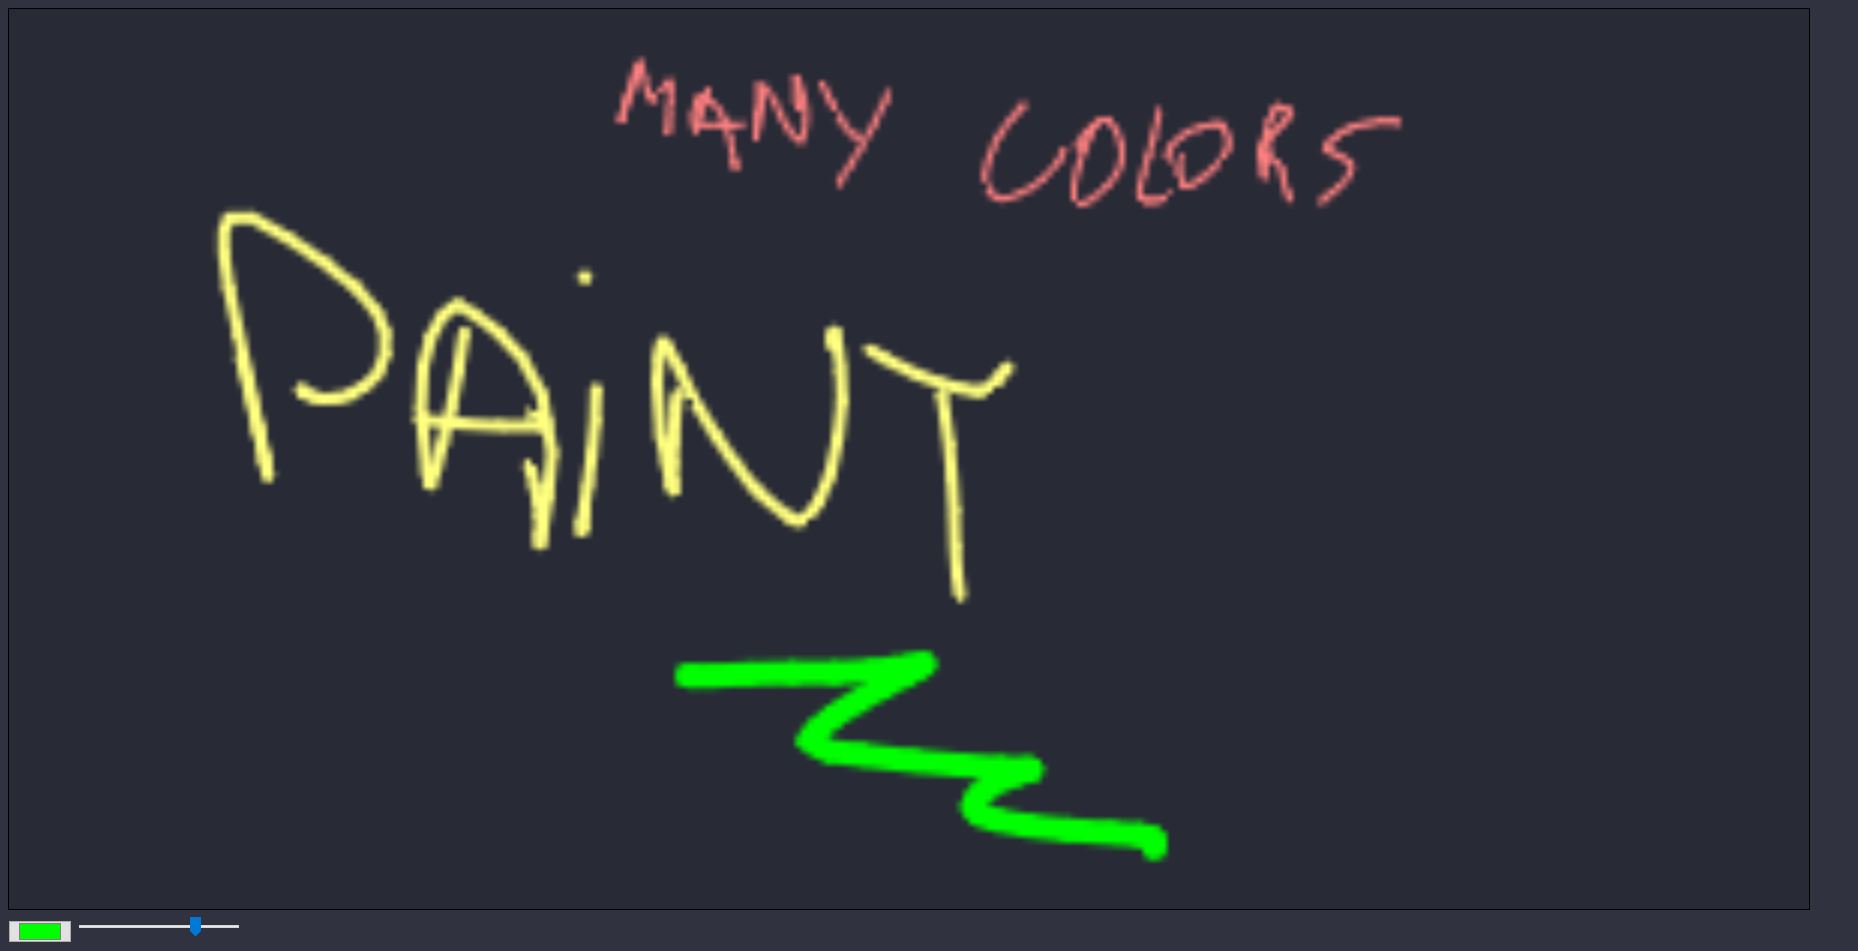 MANY COLORS
PAiNT